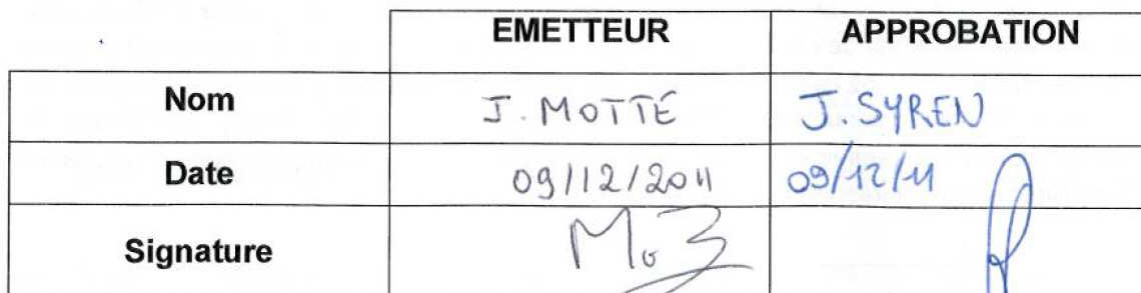 EMETTEUR APPROBATION
Nom J. MOTTE J. SYREN
Date 09/12/2011 09/12/11
Signature